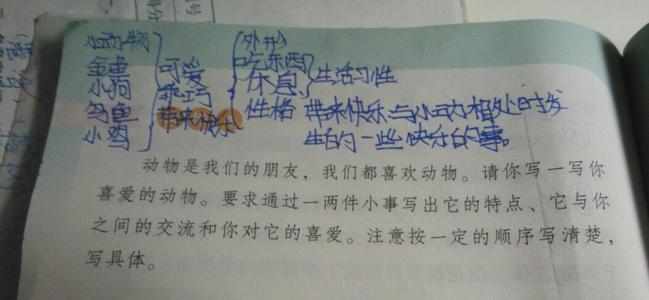 小动物
可爱
外形
吃东西
小狗
乖巧
休息
生活习性
乌龟
带来快乐
性格
带来快乐与小动物相处时发
小鸡
生的一些快乐的事。
动物是我们的朋友，我们都喜欢动物。请你写一写你
喜爱的动物。要求通过一两件小事写出它的特点、它与你
之间的交流和你对它的喜爱。注意按一定的顺序写清楚，
写具体。